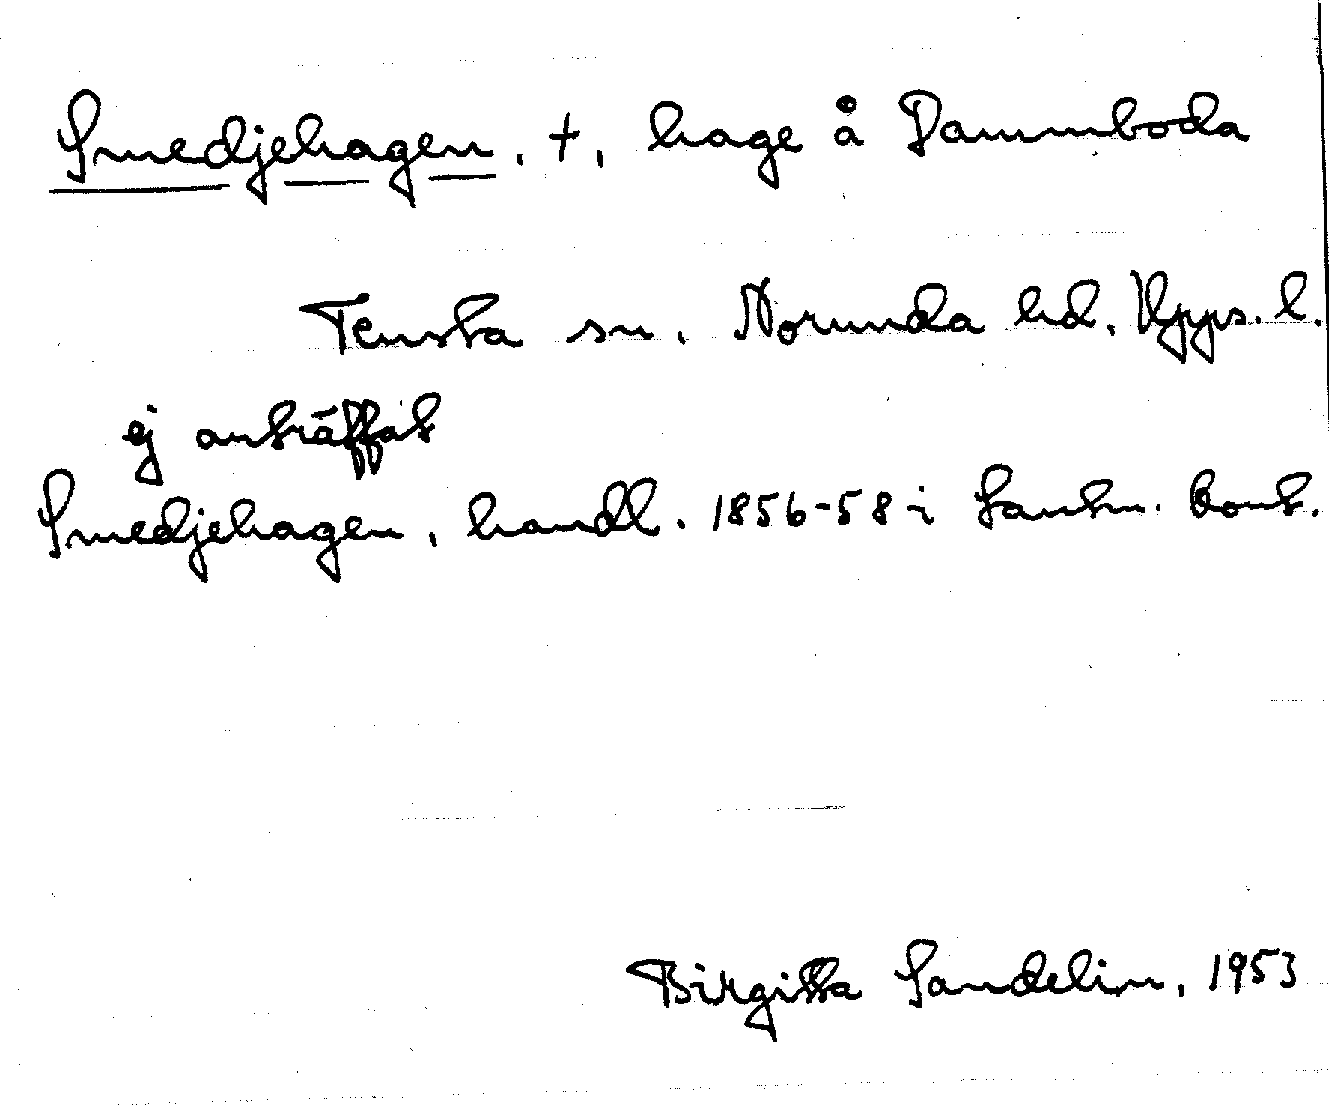 Smedjehagen, †, hage å Dammboda
Tensta sn. Norunda hd. Upps. l.
ej anträffat
Smedjehagen, handl. 1856-58 i Lantm. kont.
Birgitta Sandelin, 1953